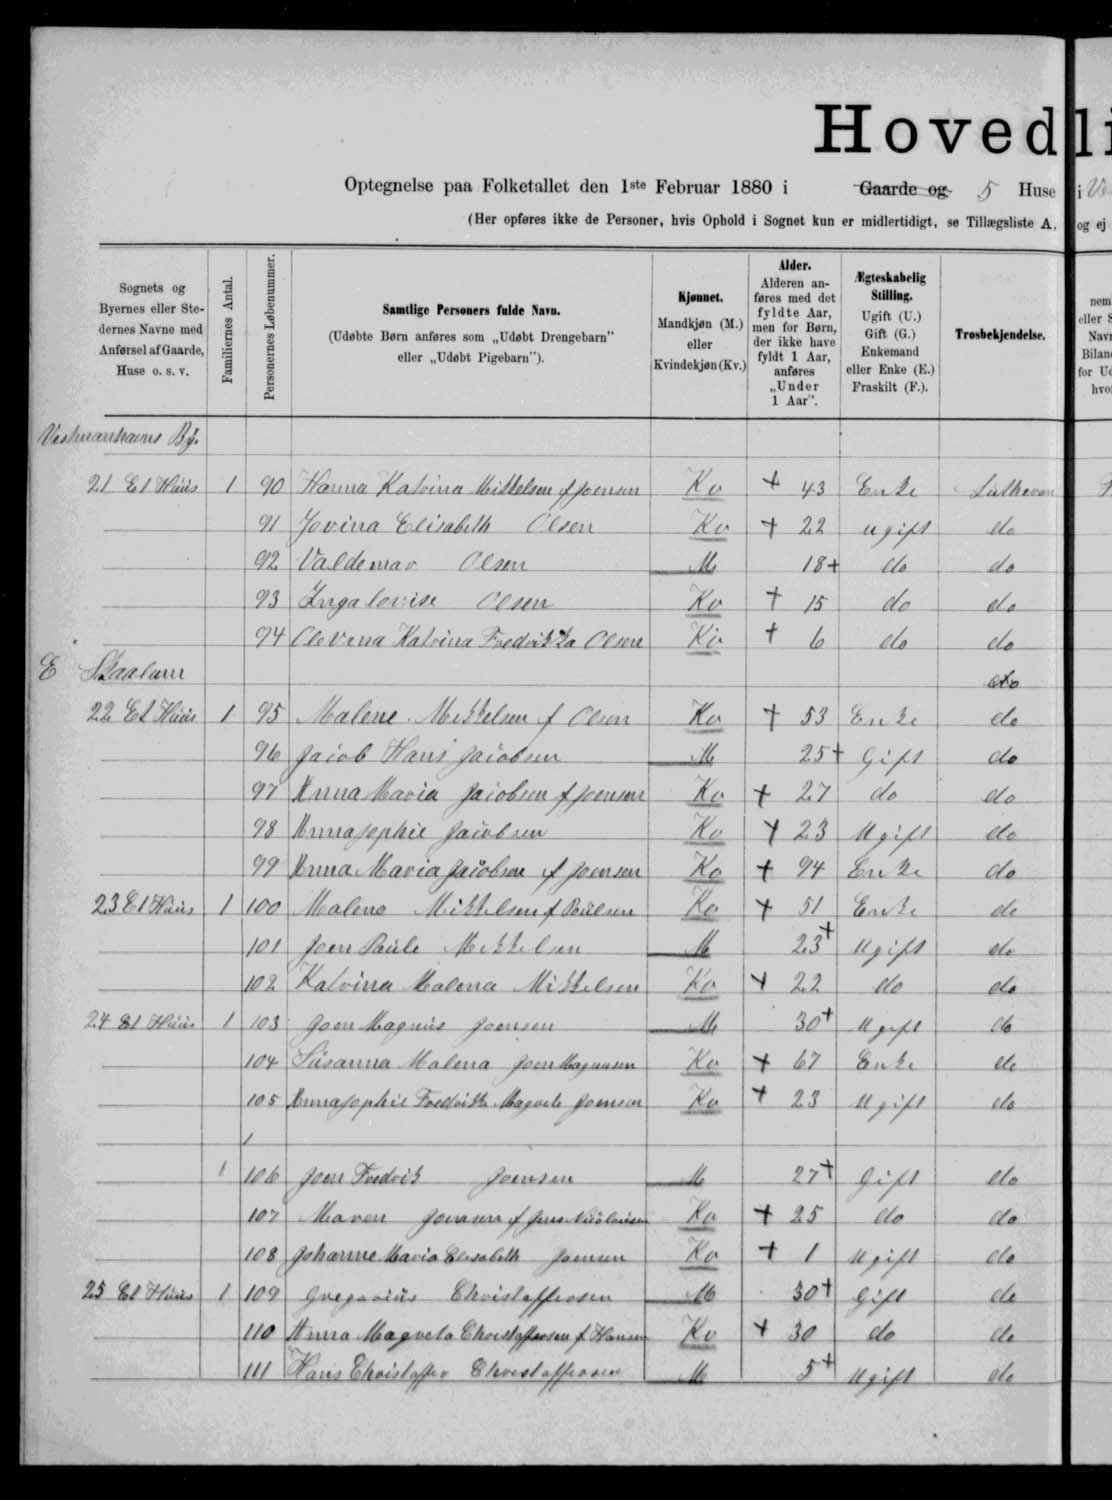 Hovedli
Optegnelse paa Folketallet den 1ste Februar 1880 i Gaarde og 5 Huse i
(Her opføres ikke de Personer, hvis Ophold i Sognet kun er midlertidigt, se Tillægsliste A, og ej
Sognets og Byernes eller Stedernes Navne med Anførsel af Gaarde, Huse o. s. v.
Familiernes Antal.
Personernes Løbenummer.
Samtlige Personers fulde Navn.
(Udøbte Børn anføres som „Udøbt Drengebarn” eller „Udøbt Pigebarn”).
Kjønnet.
Mandkjøn (M.) eller Kvindekjøn (Kv.)
Alder.
Alderen anføres med det fyldte Aar, men for Børn, der ikke have fyldt 1 Aar, anføres „Under 1 Aar”.
Ægteskabelig Stilling.
Ugift (U.) Gift (G.) Enkemand eller Enke (E.) Fraskilt (F.).
Trosbekjendelse.
Vestmanhavns By.
21 Et Hüüs 1 90 Hanna Katrina Mikkelsen f Joensen Kv + 43 Enke Lutheran
91 Jovina Elisabeth Olsen Kv + 22 ugift do
92 Valdemar Olsen M 18 + do do
93 Ingalovise Olsen Kv + 15 do do
94 Olevina Katrina Fredrikka Olsen Kv + 6 do do
E Skaalum do
22 Et Hüüs 1 95 Malene Mikkelsen f Olsen Kv + 53 Enke do
96 Jacob Hans Jacobsen M 25 + Gift do
97 Anna Maria Jacobsen f Joensen Kv + 27 do do
98 Annasophie Jacobsen Kv + 23 Ugift do
99 Anna Maria Jacobsen f Joensen Kv + 94 Enke do
23 Et Hüüs 1 100 Malene Mikkelsen f Poülsen Kv + 51 Enke do
101 Joen Paule Mikkelsen M 23 + Ugift do
102 Katrina Malena Mikkelsen Kv + 22 do do
24 Et Hüüs 1 103 Joen Magnus Joensen M 30 + Ugift do
104 Süsanna Malena Joen Magnusen Kv + 67 Enke do
105 Annasophie Fredrikke Magrete Joensen Kv + 23 Ugift do
1
1 106 Joen Fredrik Joensen M 27 + Gift do
107 Maren Joensen f Kv + 25 do do
108 Johanne Maria Elisabeth Joensen Kv + 1 Ugift do
25 Et Hüüs 1 109 Gregoriüs Christoffersen M 30 + Gift do
110 Anna Magreta Christoffersen f Hansen Kv + 30 do do
111 Hans Christoffer Christoffersen M 5 + Ugift do